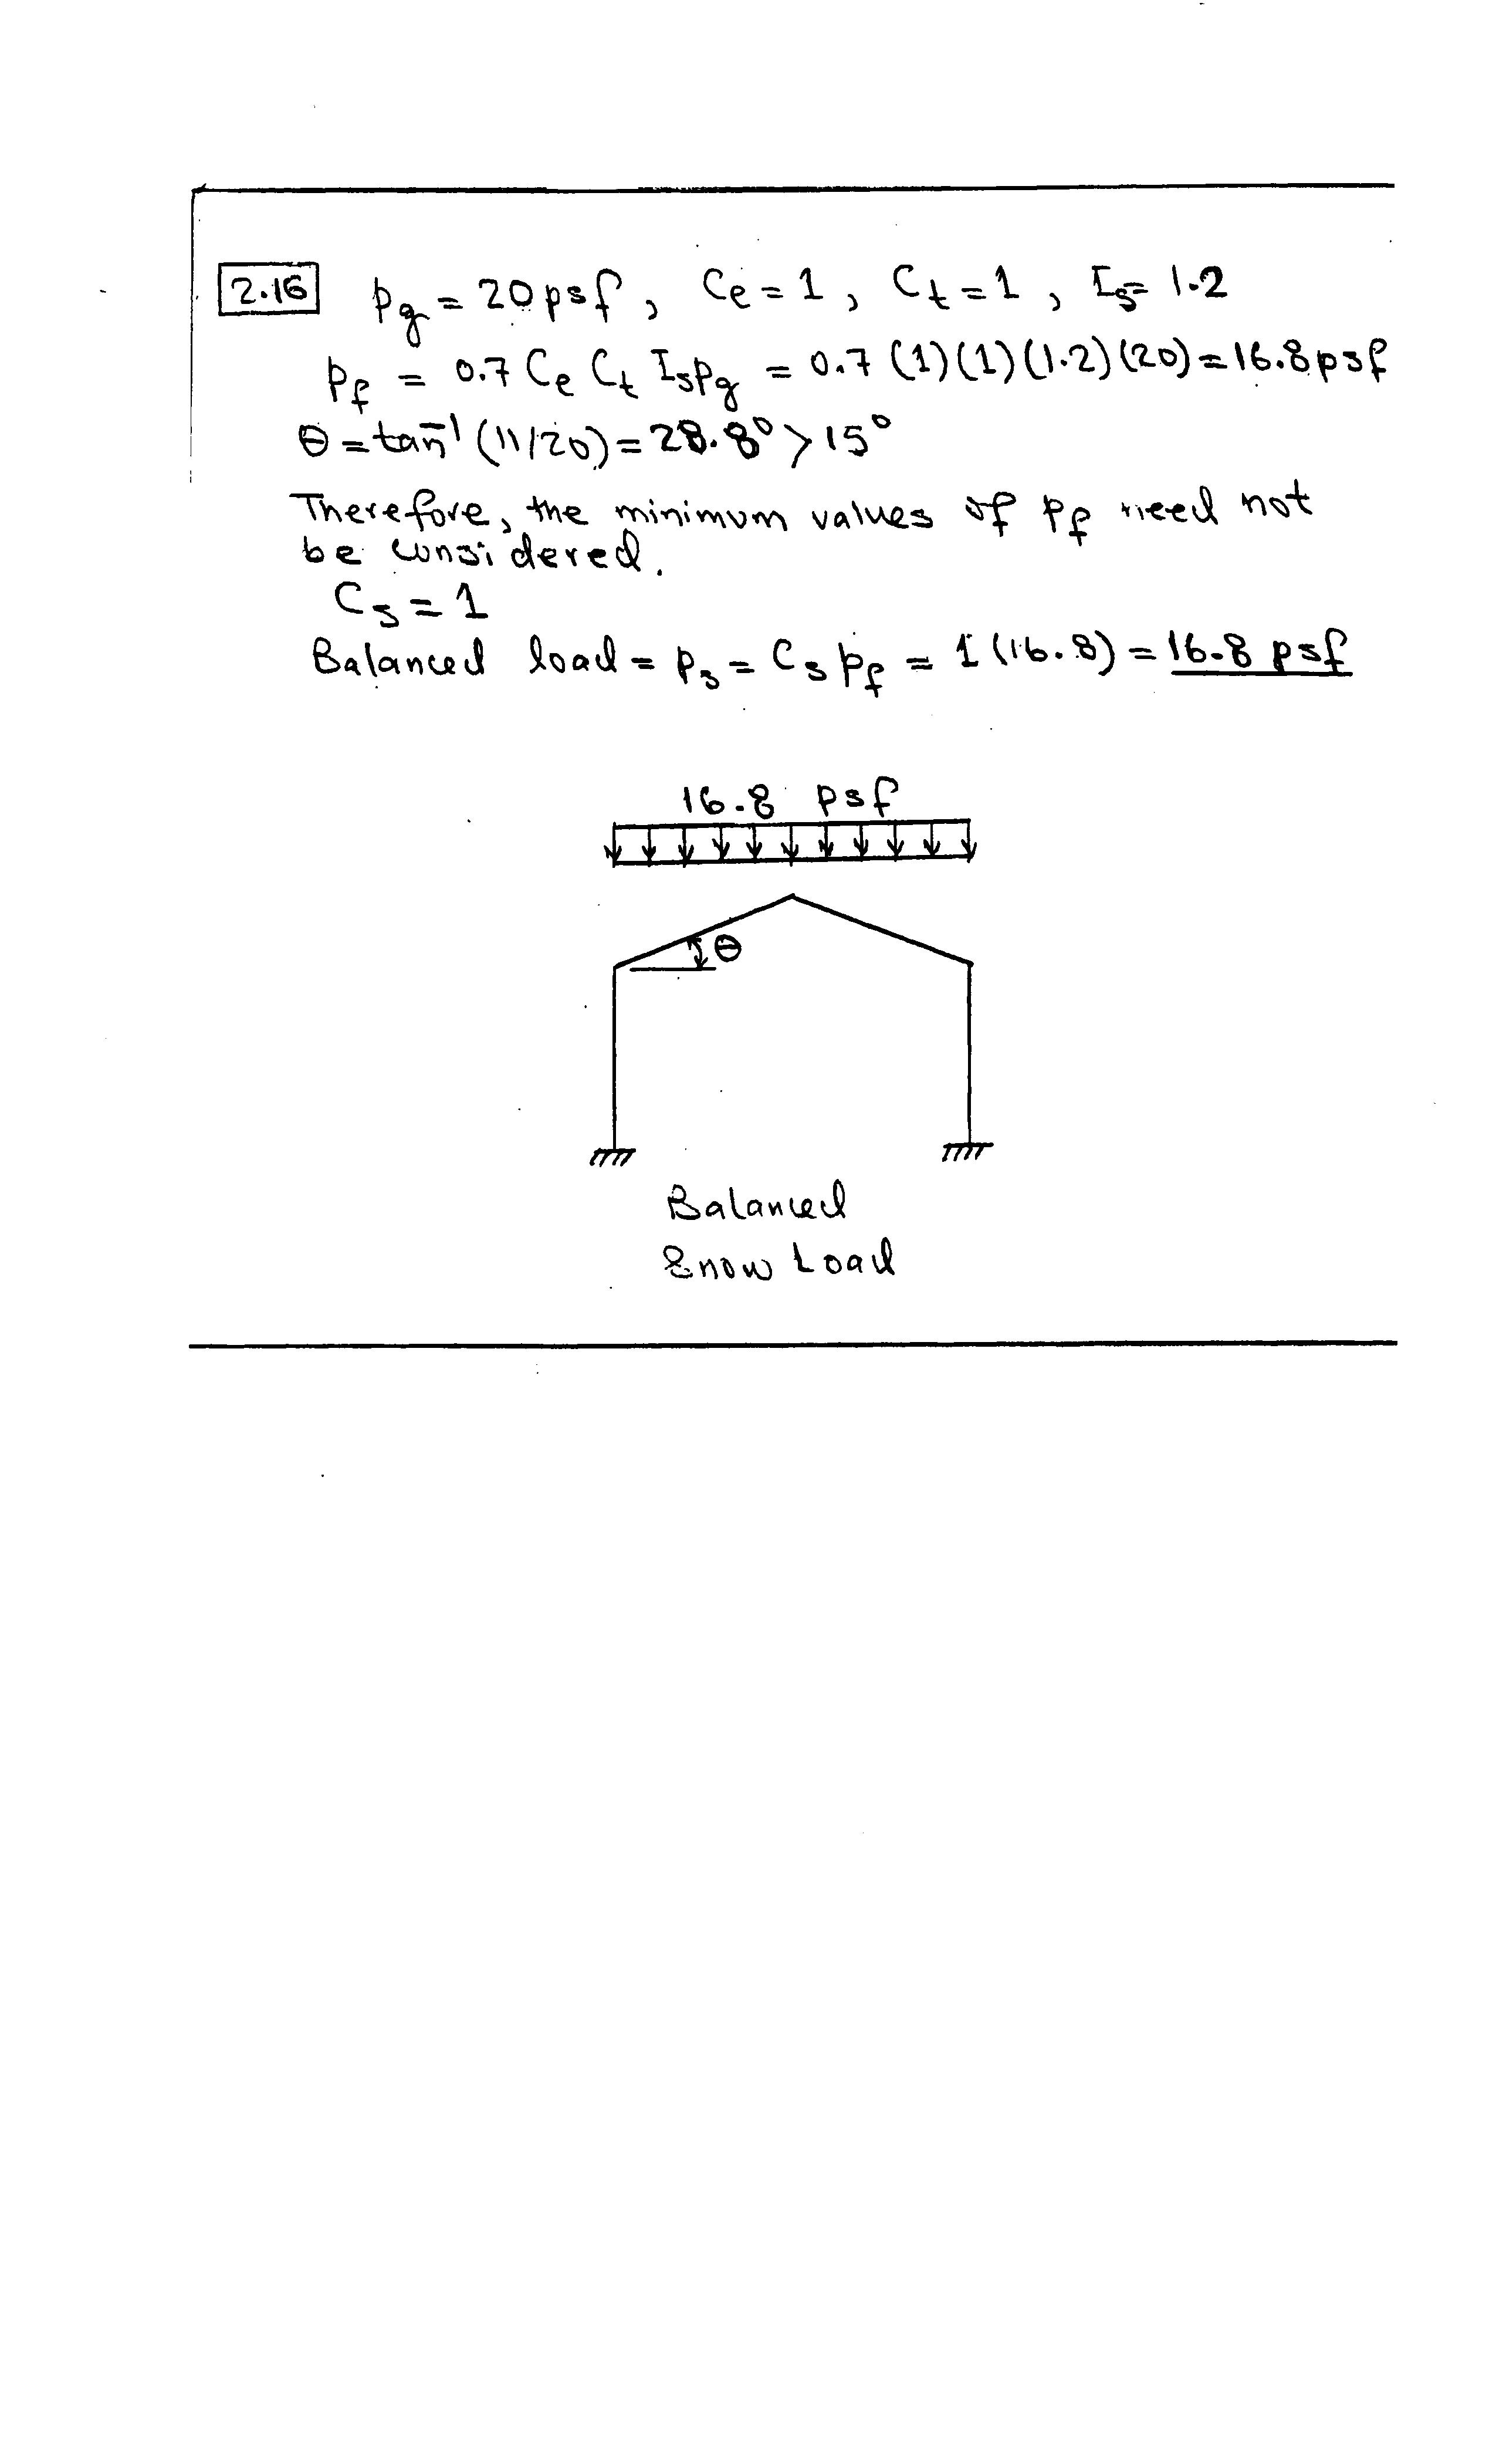 2.16 pg = 20 psf, Ce = 1, Ct = 1, Is = 1.2
pf = 0.7 Ce Ct Is pg = 0.7 (1)(1)(1.2)(20) = 16.8 psf
θ = tan⁻¹ (11/20) = 28.8° > 15°
Therefore, the minimum values of pf need not
be considered.
Cs = 1
Balanced load = ps = Cs pf = 1 (16.8) = 16.8 psf
16.8 psf
θ
Balanced
Snow Load